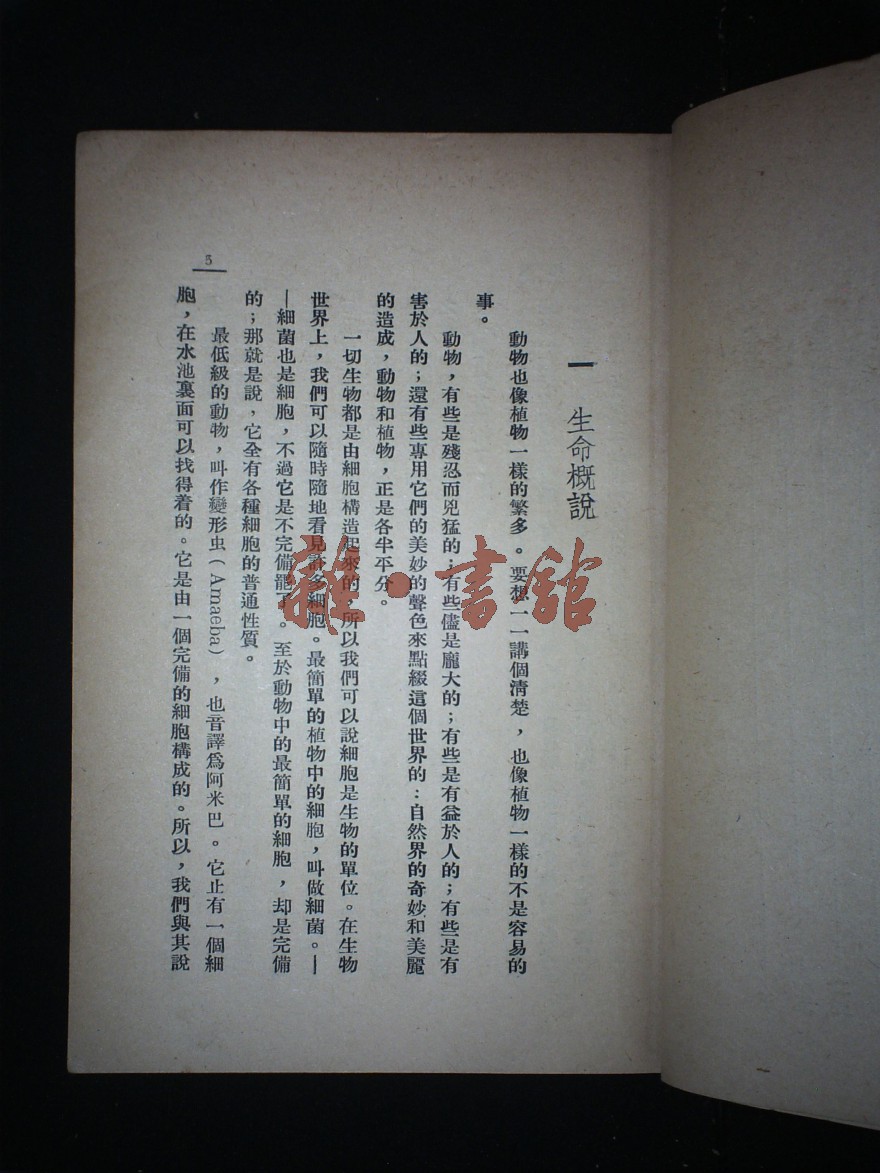 一 生命概說
動物也像植物一樣的繁多。要想一一講個清楚，也像植物一樣的不是容易的
事。
動物，有些是殘忍而兇猛的；有些儘是龐大的；有些是有益於人的；有些是有
害於人的；還有些專用它們的美妙的聲色來點綴這個世界的：自然界的奇妙和美麗
的造成，動物和植物，正是各半平分。
一切生物都是由細胞構造起來的，所以我們可以說細胞是生物的單位。在生物
世界上，我們可以隨時隨地看見許多細胞。最簡單的植物中的細胞，叫做細菌。—
—細菌也是細胞，不過它是不完備罷了。至於動物中的最簡單的細胞，却是完備
的；那就是說，它全有各種細胞的普通性質。
最低級的動物，叫作變形虫(Amaeba)，也音譯爲阿米巴。它止有一個細
胞，在水池裏面可以找得着的。它是由一個完備的細胞構成的。所以，我們與其說
5
雜·書館